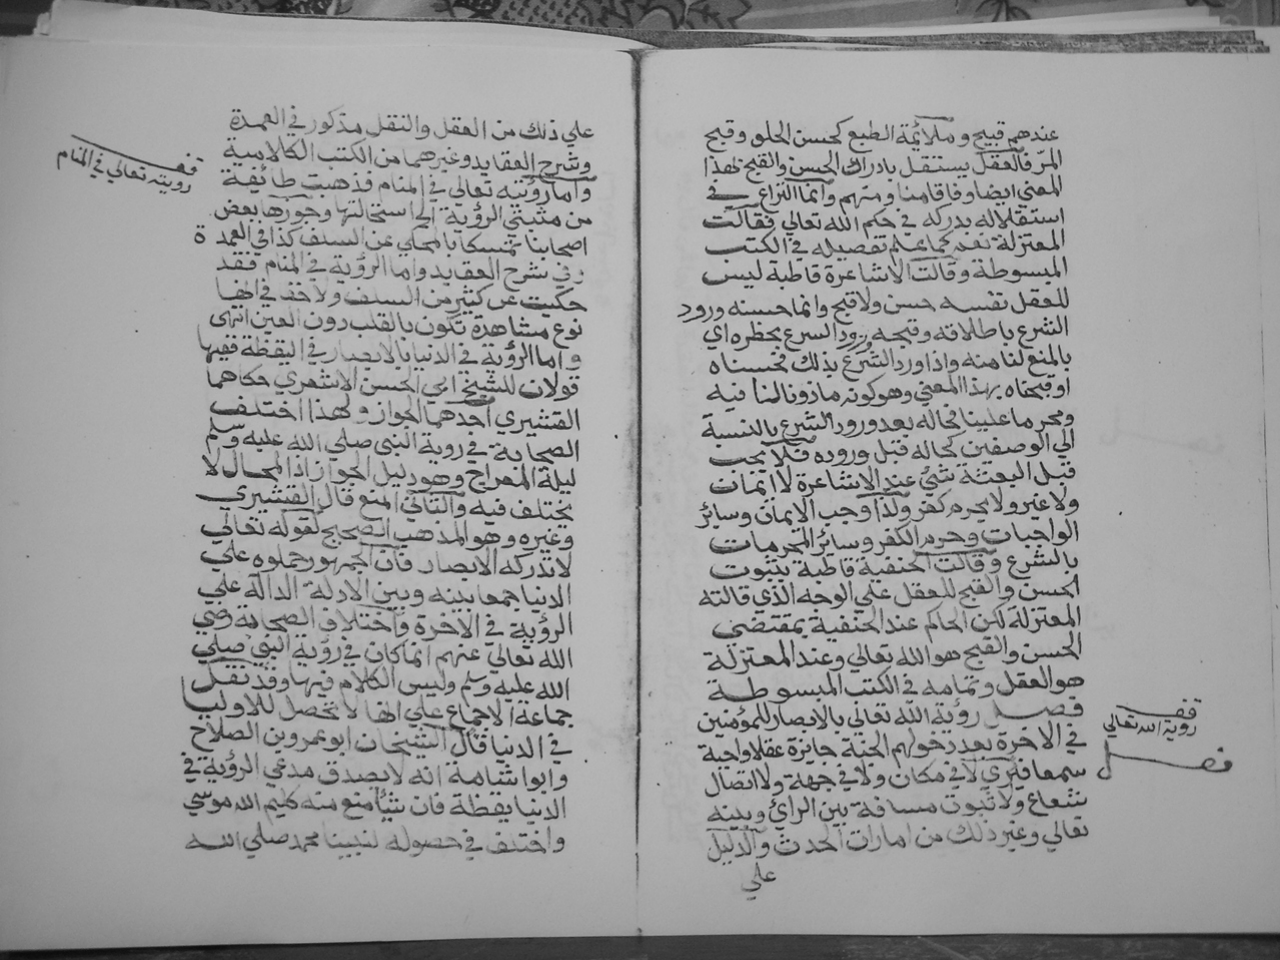 عندهم قبيح وملائمة الطبع كحسن الحلو وقبح
المر فالعقل يستقل بادراك الحسن والقبح لهذا
المعني ايضا وفاقا منا ومنهم وانما النزاع في
استقلاله بدركه في حكم الله تعالي فقالت
المعتزلة نعم كما يعلم تفصيله في الكتب
المبسوطة وقالت الاشاعرة قاطبة ليس
للعقل نفسه حسن ولا قبح وانما حسنه ورود
الشرع باطلاقه وقبحه ورود الشرع بحظره اي
بالمنع لنا منه واذا ورد الشرع بذلك فحسناه
او قبحناه بهذا المعني وهو كونه ماذونا لنا فيه
ومحرما علينا فحاله بعد ورود الشرع بالنسبة
الي الوصفين كحاله قبل وروده فلا يجب
قبل البعثة شئ عند الاشاعرة لا ايمان
ولا غير ولا يحرم كفر ولذا وجب الايمان وسائر
الواجبات وحرم الكفر وسائر المحرمات
بالشرع وقالت الحنفية قاطبة بثبوت
الحسن والقبح للعقل علي الوجه الذي قالته
المعتزلة لكن الحاكم عند الحنفية بمقتضي
الحسن والقبح هو الله تعالي وعند المعتزلة
هو العقل وتمامه في الكتب المبسوطة
فصل رؤية الله تعالي بالابصار للمؤمنين
في الاخرة بعد دخولهم الجنة جايزة عقلا واجبة
سمعا فيري لا في مكان ولا في جهة ولا اتصال
شعاع ولا ثبوت مسافة بين الرائ وبينه
تعالي وغير ذلك من امارات الحدث والدليل
علي
قف
روية الله تعالي
فصل
علي ذلك من العقل والنقل مذكور في العمدة
وشرح العقايد وغيرهما من الكتب الكلامية
واما رؤيته تعالي في المنام فذهبت طائفة
من مثبتي الرؤية الي استحالتها وجوزها بعض
اصحابنا تمسكا بالمحكي عن السلف كذا في العمدة
وفي شرح العقايد واما الرؤية في المنام فقد
حكيت عن كثير من السلف ولا خفا في انها
نوع مشاهدة تكون بالقلب دون العين انتهى
واما الرؤية في الدنيا بالابصار في اليقظة ففيها
قولان للشيخ ابي الحسن الاشعري حكاهما
القشيري احدهما الجواز ولهذا اختلف
الصحابة في روية النبي صلي الله عليه وسلم
ليلة المعراج وهو دليل الجواز اذ المحال لا
يختلف فيه والثاني المنع قال القشيري
وغيره وهو المذهب الصحيح لقوله تعالي
لا تدركه الابصار فان الجمهور حملوه علي
الدنيا جمعا بينه وبين الادلة الدالة علي
الرؤية في الاخرة واختلاف الصحابة رضي
الله تعالي عنهم انما كان في رؤية النبي صلي
الله عليه وسلم وليس الكلام فيها وقد نقل
جماعة الاجماع علي انها لا تحصل للاوليا
في الدنيا قال الشيخان ابو عمرو بن الصلاح
وابو اشامة انه لا يصدق مدعي الرؤية في
الدنيا يقظة فان شيئا منع منه كليم الله موسي
واختلف في حصوله لنبينا محمد صلي الله
قف
رويته تعالي في المنام